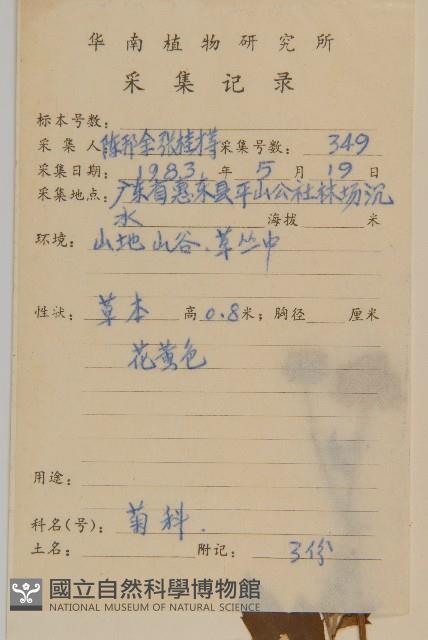 华南植物研究所
采集记录
标本号数:
采集人 陈邦余 张桂才 采集号数: 349
采集日期: 1983 年 5 月 19 日
采集地点: 广东省惠东县平山公社林场沉
水 海拔 米
环境: 山地山谷、草丛中
性状: 草本 高 0.8 米; 胸径 厘米
花黄色
用途:
科名(号): 菊科.
土名: 附记: 3份
國立自然科學博物館
NATIONAL MUSEUM OF NATURAL SCIENCE